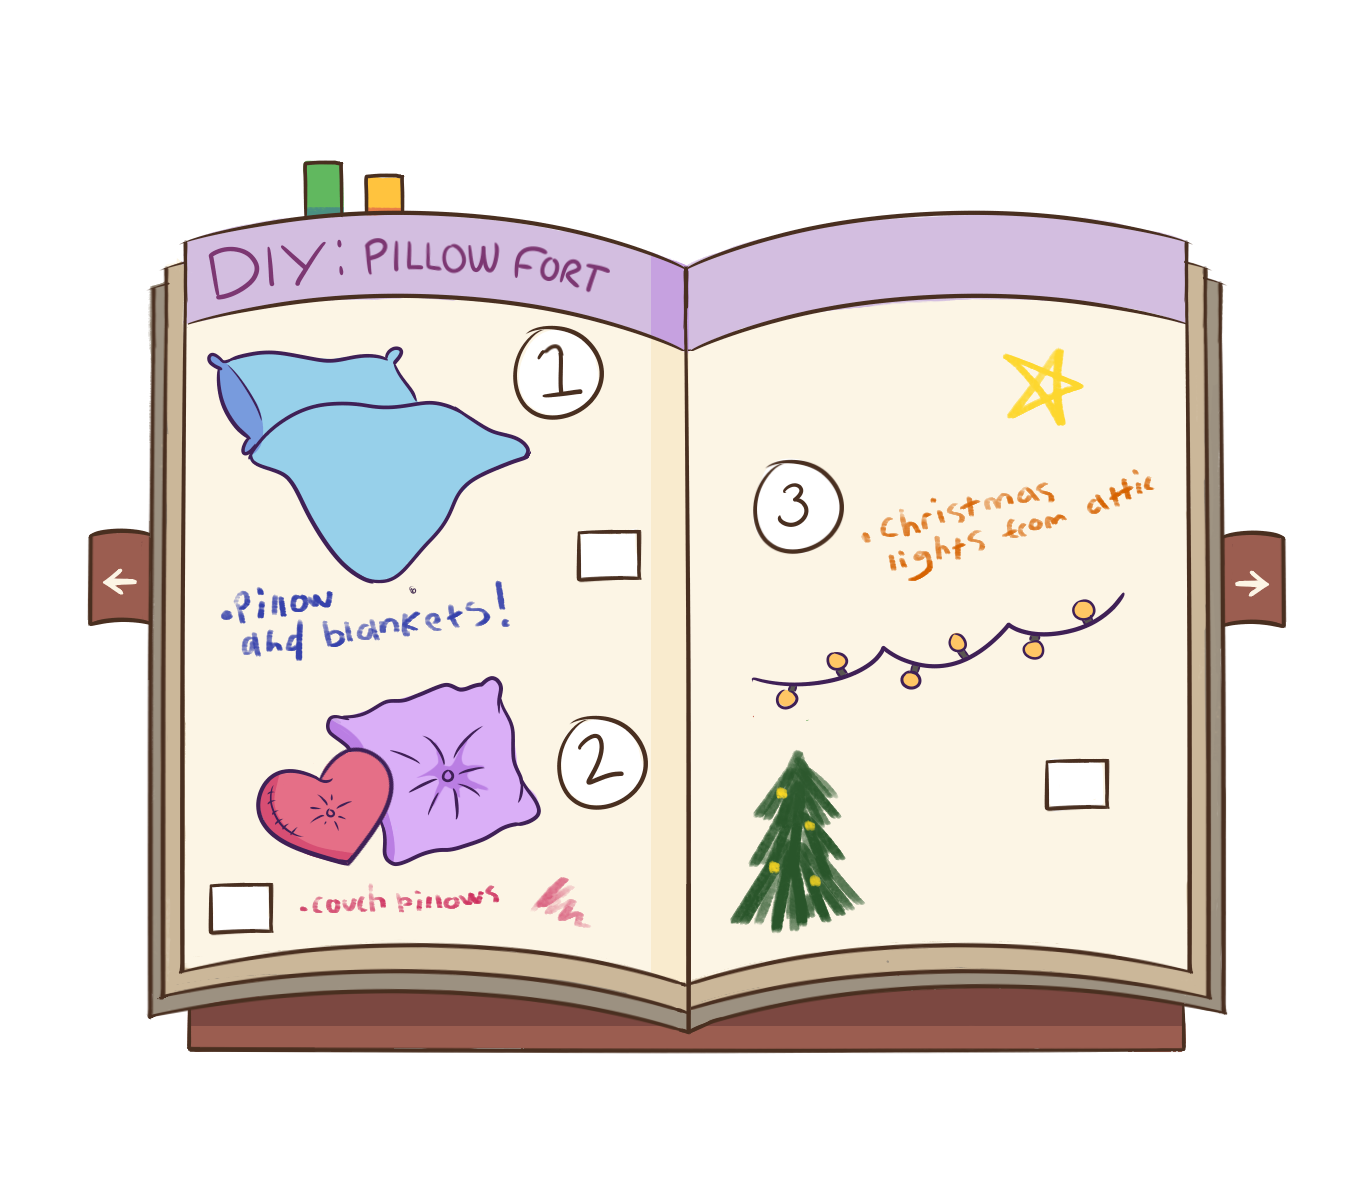 DIY: PILLOW FORT
1
• Pillow
and blankets!
2
• couch pillows
3
• Christmas
lights from attic